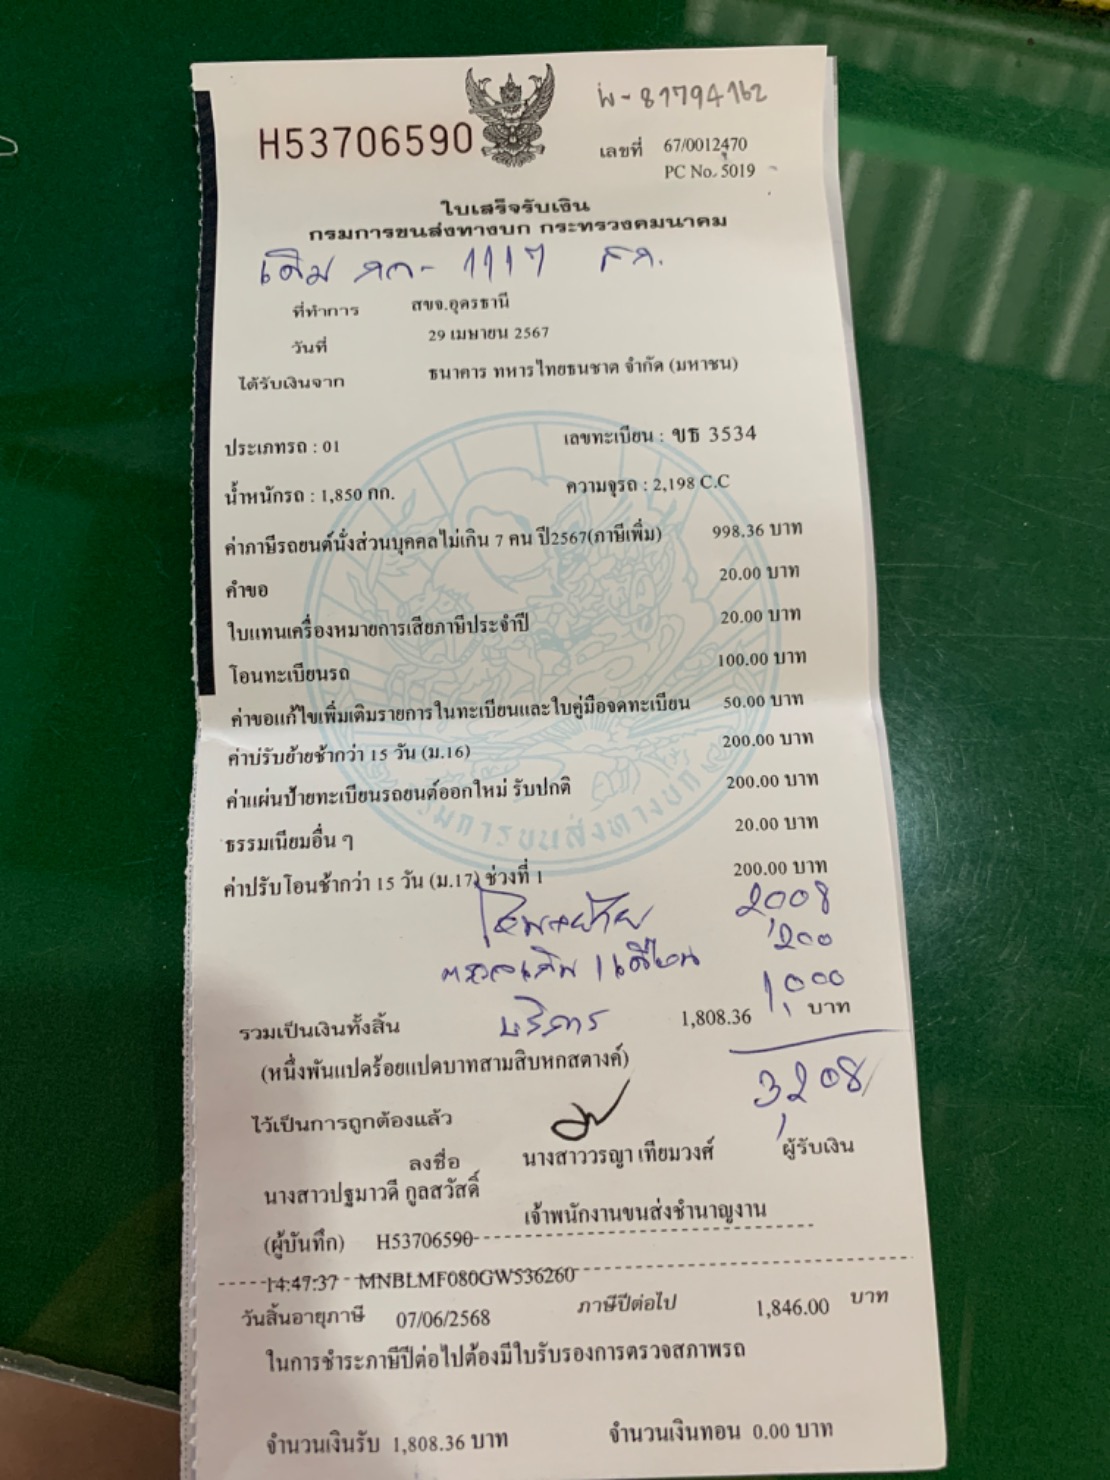 พ-81794162
H53706590
เลขที่ 67/0012470
PC No. 5019
ใบเสร็จรับเงิน
กรมการขนส่งทางบก กระทรวงคมนาคม
เดิม กก- 1117
ที่ทำการ สขจ.อุดรธานี
วันที่ 29 เมษายน 2567
ได้รับเงินจาก ธนาคาร ทหารไทยธนชาต จำกัด (มหาชน)
ประเภทรถ : 01 เลขทะเบียน : ขธ 3534
น้ำหนักรถ : 1,850 กก. ความจุรถ : 2,198 C.C
ค่าภาษีรถยนต์นั่งส่วนบุคคลไม่เกิน 7 คน ปี2567(ภาษีเพิ่ม) 998.36 บาท
คำขอ 20.00 บาท
ใบแทนเครื่องหมายการเสียภาษีประจำปี 20.00 บาท
โอนทะเบียนรถ 100.00 บาท
ค่าขอแก้ไขเพิ่มเติมรายการในทะเบียนและใบคู่มือจดทะเบียน 50.00 บาท
ค่าปรับย้ายช้ากว่า 15 วัน (ม.16) 200.00 บาท
ค่าแผ่นป้ายทะเบียนรถยนต์ออกใหม่ รับปกติ 200.00 บาท
ธรรมเนียมอื่น ๆ 20.00 บาท
ค่าปรับโอนช้ากว่า 15 วัน (ม.17) ช่วงที่ 1 200.00 บาท
กรมการขนส่งทางบก
2,008
200
บริการ 1,000
รวมเป็นเงินทั้งสิ้น 1,808.36 บาท
(หนึ่งพันแปดร้อยแปดบาทสามสิบหกสตางค์)
3,208
ไว้เป็นการถูกต้องแล้ว
ลงชื่อ นางสาววรญา เทียมวงศ์ ผู้รับเงิน
นางสาวปฐมาวดี กูลสวัสดิ์ เจ้าพนักงานขนส่งชำนาญงาน
(ผู้บันทึก) H53706590
14:47:37 MNBLMF080GW536260
วันสิ้นอายุภาษี 07/06/2568 ภาษีปีต่อไป 1,846.00 บาท
ในการชำระภาษีปีต่อไปต้องมีใบรับรองการตรวจสภาพรถ
จำนวนเงินรับ 1,808.36 บาท จำนวนเงินทอน 0.00 บาท